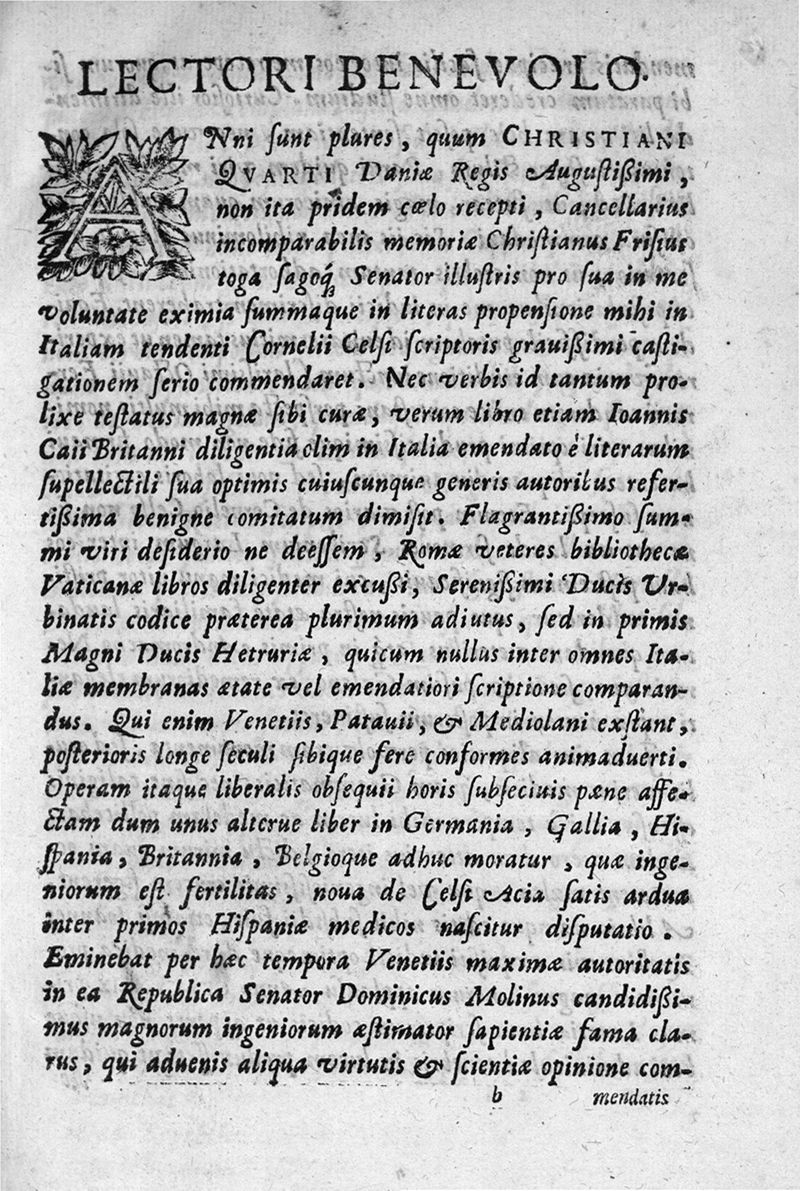 LECTORI BENEVOLO.
ANni ſunt plures, quum CHRISTIANI
QVARTI Daniæ Regis Auguſtißimi,
non ita pridem cœlo recepti, Cancellarius
incomparabilis memoriæ Chriſtianus Friſius
toga ſagoq́ꝫ Senator illuſtris pro ſua in me
voluntate eximia ſummaque in literas propenſione mihi in
Italiam tendenti Cornelii Celſi ſcriptoris grauißimi caſti-
gationem ſerio commendaret. Nec verbis id tantum pro-
lixe teſtatus magnæ ſibi curæ, verum libro etiam Ioannis
Caii Britanni diligentia olim in Italia emendato è literarum
ſupellectili ſua optimis cuiuſcunque generis autoribus refer-
tißima benigne comitatum dimiſit. Flagrantißimo ſum-
mi viri deſiderio ne deeſſem, Romæ veteres bibliothecæ
Vaticanæ libros diligenter excußi, Sereniſſimi Ducis Vr-
binatis codice præterea plurimum adiutus, ſed in primis
Magni Ducis Hetruriæ, quicum nullus inter omnes Ita-
liæ membranas ætate vel emendatiori ſcriptione comparan-
dus. Qui enim Venetiis, Patauii, & Mediolani exſtant,
poſterioris longe ſeculi ſibique fere conformes animaduerti.
Operam itaque liberalis obſequii horis ſubſeciuis pæne affe-
ctam dum unus alterue liber in Germania, Gallia, Hi-
ſpania, Britannia, Belgioque adhuc moratur, quæ inge-
niorum eſt fertilitas, noua de Celſi Acia ſatis ardua
inter primos Hiſpaniæ medicos naſcitur diſputatio.
Eminebat per hæc tempora Venetiis maximæ autoritatis
in ea Republica Senator Dominicus Molinus candidißi-
mus magnorum ingeniorum æſtimator ſapientiæ fama cla-
rus, qui aduenis aliqua virtutis & ſcientiæ opinione com-
b mendatis